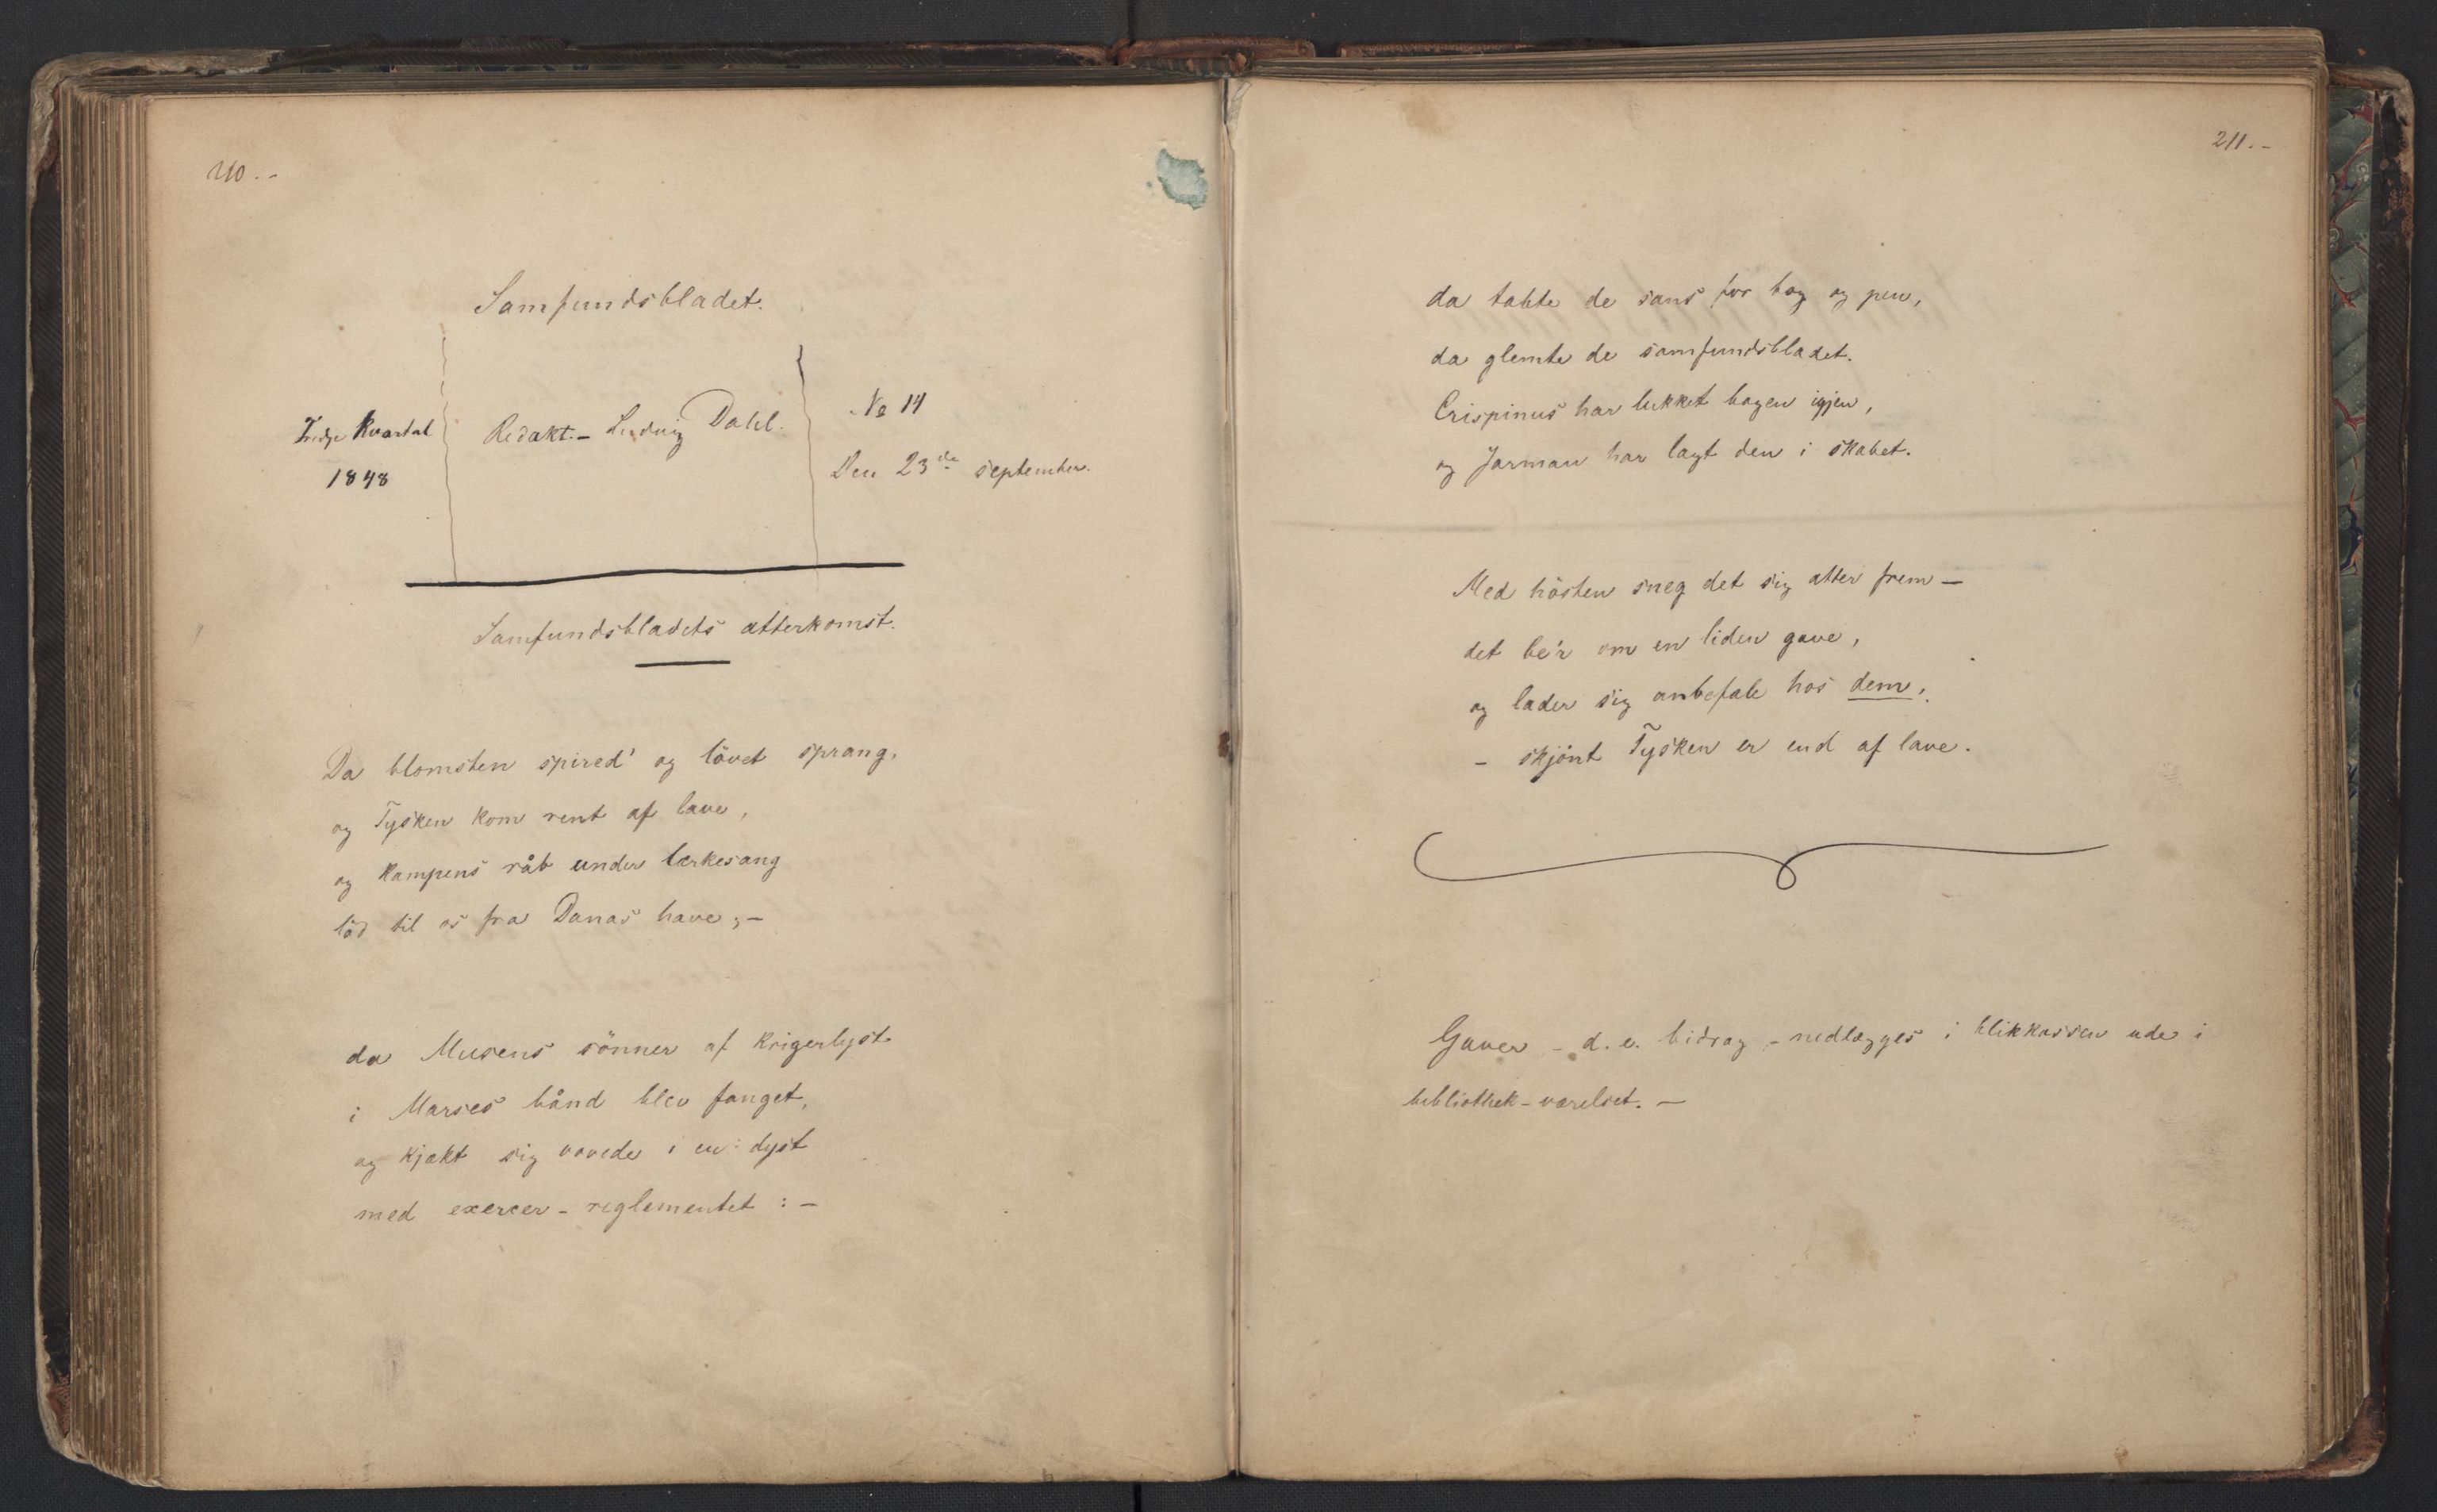 210.-
Samfundsbladet.
Tredje Kvartal
1848
Redakt.- Ludvig Dahl.
No 14
Den 23de september.
Samfundsbladets atterkomst.
Da blomsten spired' og lövet sprang,
og Tysken kom rent af lave,
og kampens råb under lærkesang
löd til os fra Danas have;-
da Musens sönner af krigerlyst
i Marses bånd blev fanget,
og kjækt sig vovede i en dyst
med exercer-reglementet:-
211.-
da tabte de sans for bog og pen,
da glemte de samfundsbladet.
Crispinus har lukket bogen igjen,
og Jarmann har lagt den i skabet.
Med hösten sneg det sig atter frem-
det be'r om en liden gave,
og lader sig anbefale hos dem,
- skjönt Tysken er end af lave.
Gaver - d. e. bidrag - nedlægges i blikkassen ude i
bibliothek-værelset. -